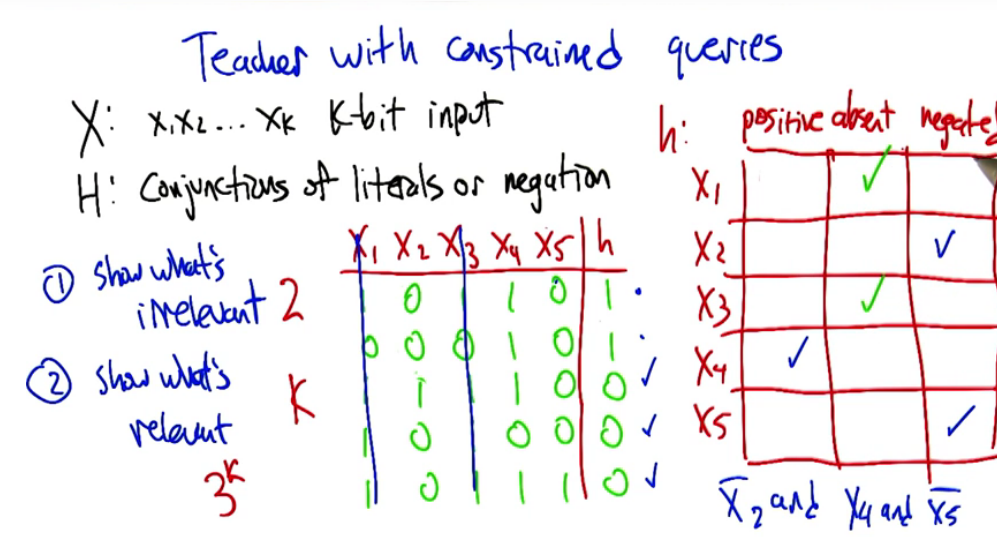 Teacher with constrained queries
X: x₁x₂... xₖ k-bit input
H: conjunctions of literals or negation
① show what's
irrelevant 2
② show what's
relevant k
3ᵏ
X₁ X₂ X₃ X₄ X₅ h
1 0 1 1 0 1 .
0 0 0 1 0 1 .
1 1 1 1 0 0 ✓
1 0 1 0 0 0 ✓
1 0 1 1 1 0 ✓
h: positive absent negated
X₁ ✓
X₂ ✓
X₃ ✓
X₄ ✓
X₅ ✓
X̅₂ and X₄ and X̅₅